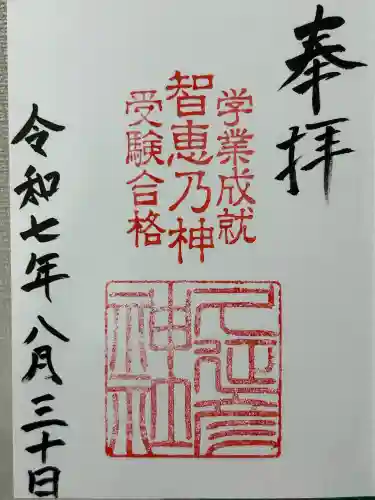 奉拝
学業成就
智恵乃神
受験合格
神社
令和七年八月三十日